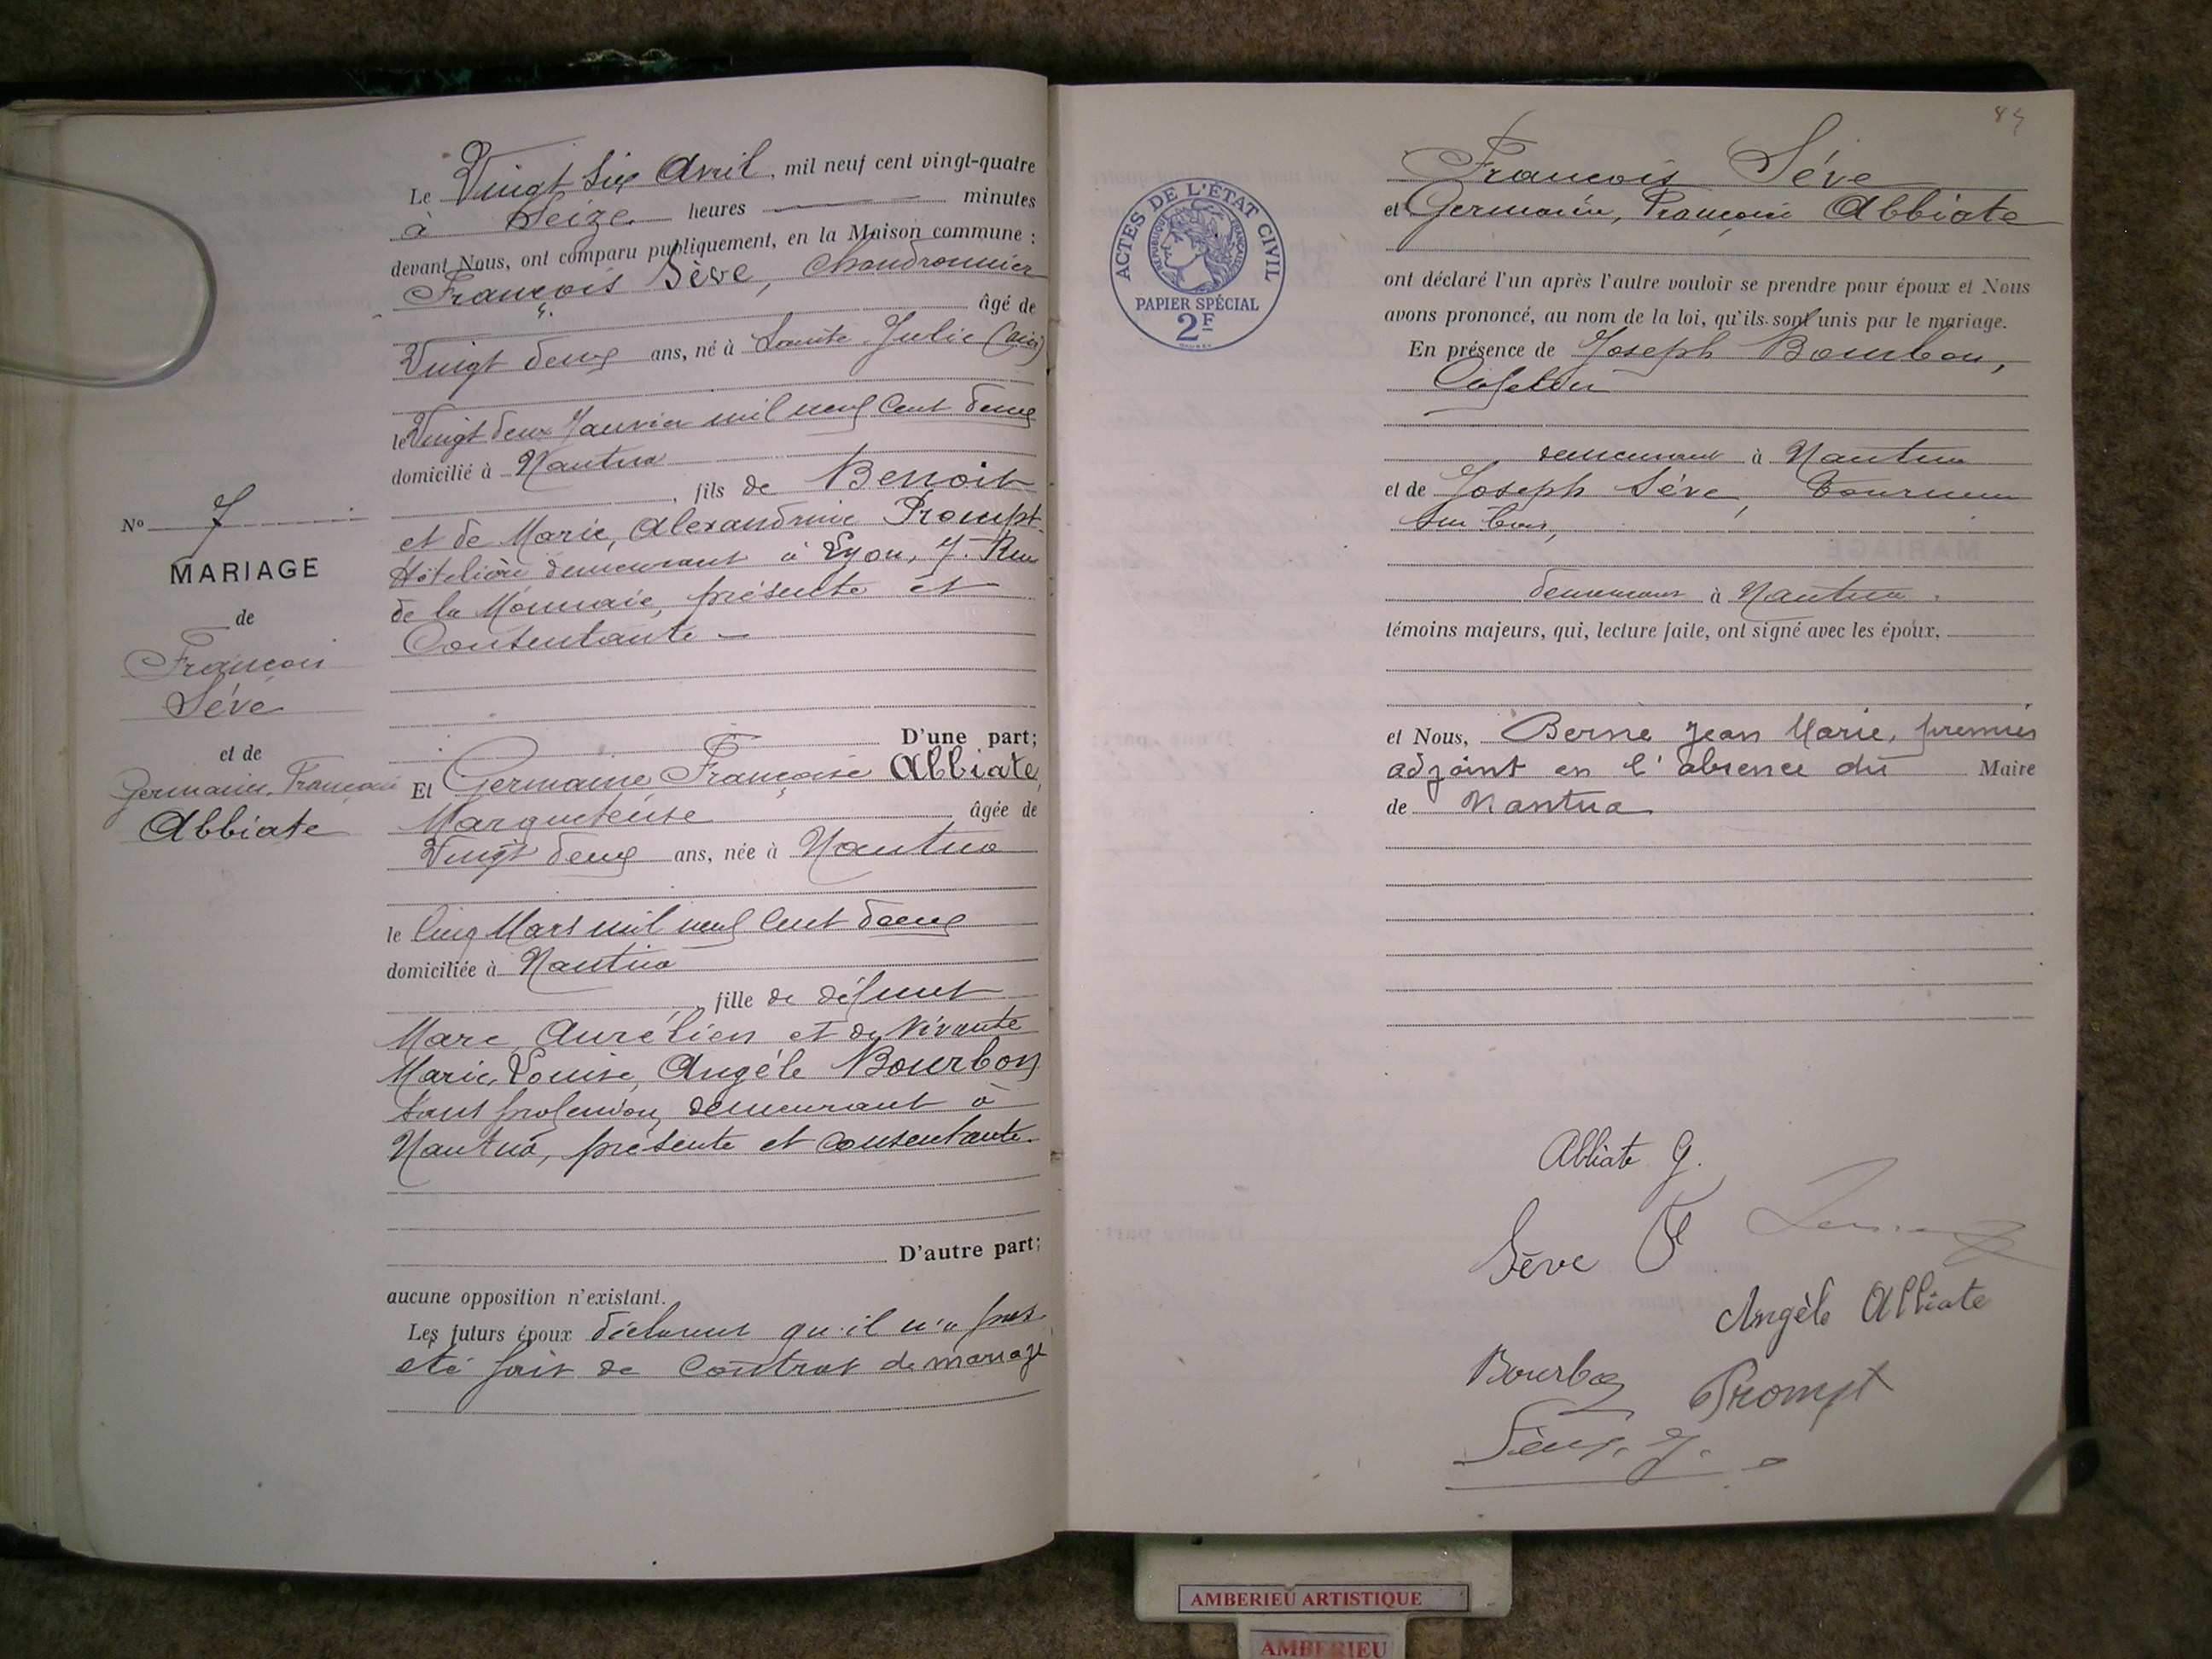 Le Vingt six Avril, mil neuf cent vingt-quatre
à Seize heures minutes
devant Nous, ont comparu publiquement, en la Maison commune :
François Sève, Chaudronnier
âgé de
Vingt deux ans, né à Sainte Julie (Ain)
le Vingt deux Janvier mil neuf cent deux
domicilié à Nantua
, fils de Benoit
et de Marie, Alexandrine Prompt
Hôtelière demeurant à Lyon, 7. Rue
de la Monnaie, présente et
Consentante
D'une part;
Et Germaine, Françoise Abbiate,
Marqueteuse âgée de
Vingt deux ans, née à Nantua
le Cinq Mars mil neuf cent deux
domiciliée à Nantua
, fille de défunt
Marc Aurélien et de vivante
Marie, Louise, Angéle Bourbon
sans profession, demeurant à
Nantua, présente et consentante.
D'autre part;
aucune opposition n'existant.
Les futurs époux déclarent qu'il n'a pas
été fait de Contrat de mariage
No 7
MARIAGE
de
François
Séve
et de
Germaine, Françoise
Abbiate
ACTES DE L'ÉTAT CIVIL
RÉPUBLIQUE FRANÇAISE
PAPIER SPÉCIAL
2F
84
François Séve
et Germaine, Françoise Abbiate
ont déclaré l'un après l'autre vouloir se prendre pour époux et Nous
avons prononcé, au nom de la loi, qu'ils sont unis par le mariage.
En présence de Joseph Bourbon,
Cafetier
demeurant à Nantua
et de Joseph Séve, Tourneur
sur bois,
demeurant à Nantua.
témoins majeurs, qui, lecture faite, ont signé avec les époux,
et Nous, Berne Jean Marie, premier
adjoint en l'absence du Maire
de Nantua
Abbiate G.
Sève F
Angèle Abbiate
Bourbon
Prompt
Sève J.
AMBERIEU ARTISTIQUE
AMBERIEU